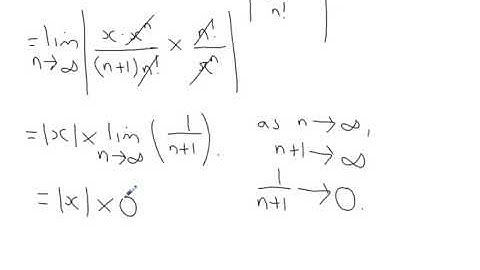 n!
= lim n→∞ | x · xⁿ / (n+1) n! × n! / xⁿ |
= |x| × lim n→∞ ( 1 / n+1 ). as n → ∞,
n+1 → ∞
= |x| × 0 1 / n+1 → 0.